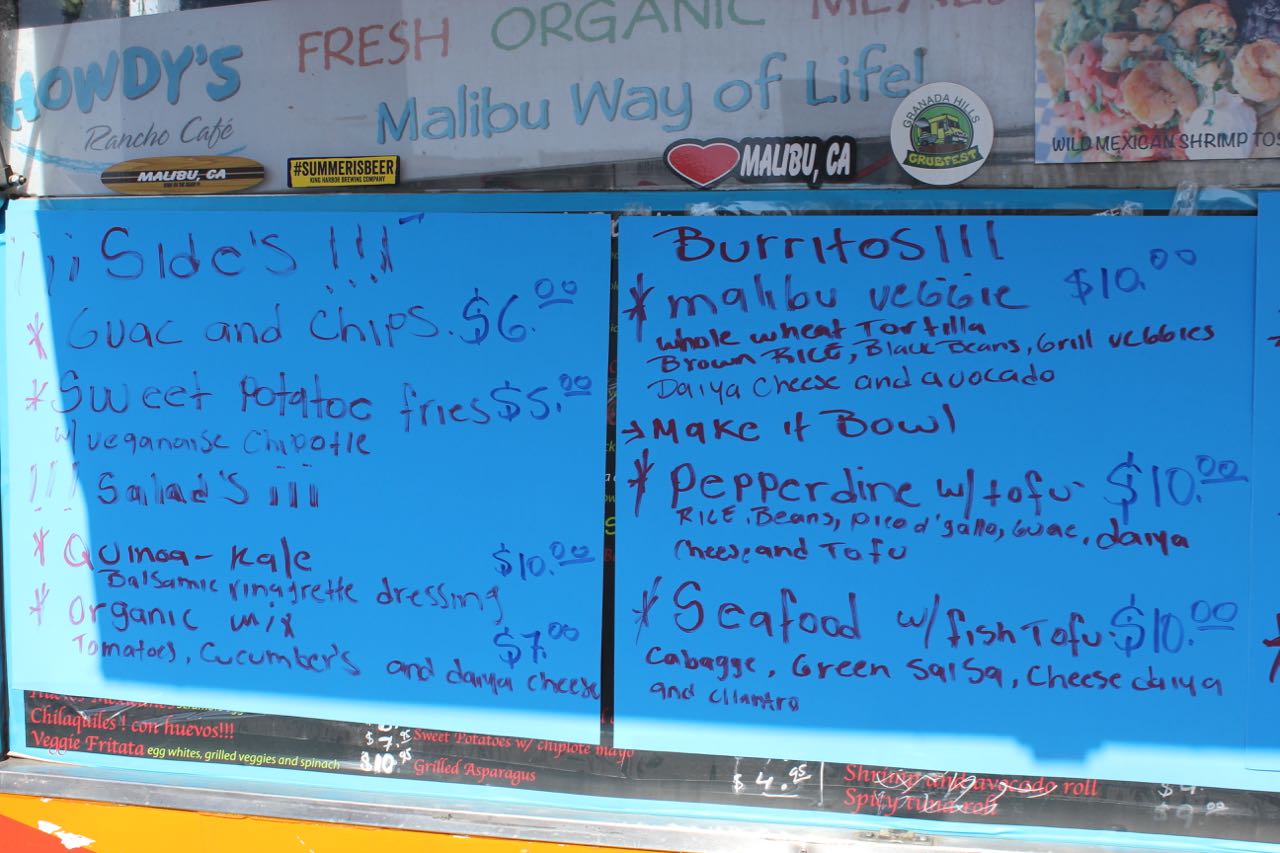 FRESH ORGANIC MEALS
HOWDY'S
Rancho Café
Malibu Way of Life!
MALIBU, CA
#SUMMERISBEER
KING HARBOR BREWING COMPANY
MALIBU, CA
GRANADA HILLS
GRUBFEST
WILD MEXICAN SHRIMP TOS
¡¡¡ Side's !!!
* Guac and Chips. $6.00
* Sweet Potatoe fries $5.00
w/ veganaise Chipotle
!!! Salad's ¡¡¡
* Quinoa - Kale $10.00
Balsamic vinagrette dressing
* Organic mix $7.00
Tomatoes, Cucumber's and daiya cheese
Burritos!!!
* malibu veggie $10.00
whole wheat Tortilla
Brown RICE, Black Beans, Grill veggies
Daiya Cheese and avocado
→ Make it Bowl
* Pepperdine w/ tofu $10.00
RICE, Beans, pico d' gallo, Guac, daiya
Cheese and Tofu
* Seafood w/ fish Tofu $10.00
Cabagge, Green Salsa, Cheese daiya
and cilantro
Chilaquiles ! con huevos!!! $7.95
Veggie Fritata egg whites, grilled veggies and spinach $10.95
Sweet Potatoes w/ chiplote mayo
Grilled Asparagus
$4.95
Shrimp and avocado roll
Spicy tuna roll $9.00